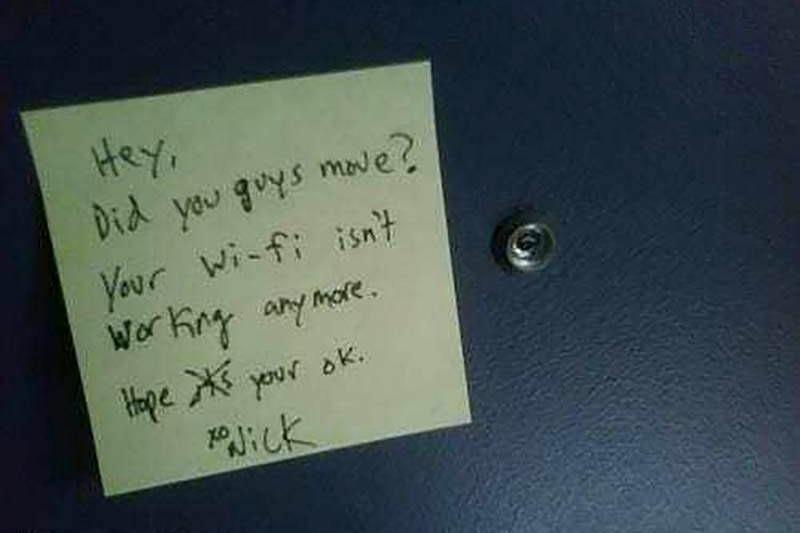 Hey,
Did you guys move?
Your Wi-fi isn't
working anymore.
Hope your ok.
xo Nick